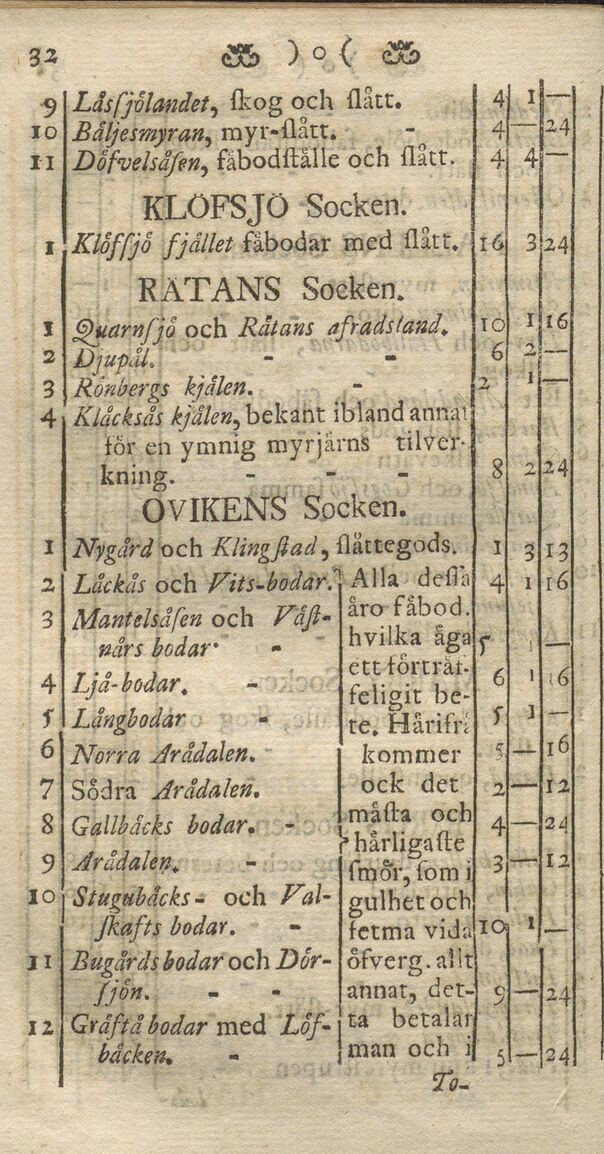 32 ) o (
9 Låsſjölandet, ſkog och ſlått. 4 1 —
10 Båljesmyran, myr-ſlått. - 4 — 24
11 Döfvelsåſen, fåbodſtålle och ſlått. 4 4 —
KLÖFSJÖ Socken.
1 Klöfſjö fjället fåbodar med ſlått. 16 3 24
RÄTANS Socken.
1 Quarnſjö och Råtans afradsland. 10 1 16
2 Djupål. - - 6 2 —
3 Rönbergs kjålen. - 2 1 —
4 Klåcksås kjålen, bekant ibland annat
för en ymnig myrjårns tilver-
kning. - - - 8 2 24
OVIKENS Socken.
1 Nygård och Klingſtad, ſlåttegods. 1 3 13
2 Låckås och Vits-bodar. Alla deſſa 4 1 16
3 Mantelsåſen och Våſt- åro fåbod.
nårs bodar. - hvilka åga 5 1 —
4 Ljå-bodar. - ett förtråf- 6 1 16
feligit be-
5 Långbodar - te. Hårifrå 5 1 —
6 Norra Arådalen. kommer 5 — 16
7 Södra Arådalen. ock det 2 — 12
8 Gallbåcks bodar. - måſta och 4 — 24
hårligaſte
9 Arådalen. - ſmör, ſom i 3 — 12
10 Stugubåcks- och Val- gulhet och
ſkafts bodar. - fetma vida 10 1 —
11 Bugårds bodar och Dör- öfverg. allt
ſjön. - - annat, det- 9 — 24
12 Gråftå bodar med Löf- ta betalar
båcken. - man och i 5 — 24
To-